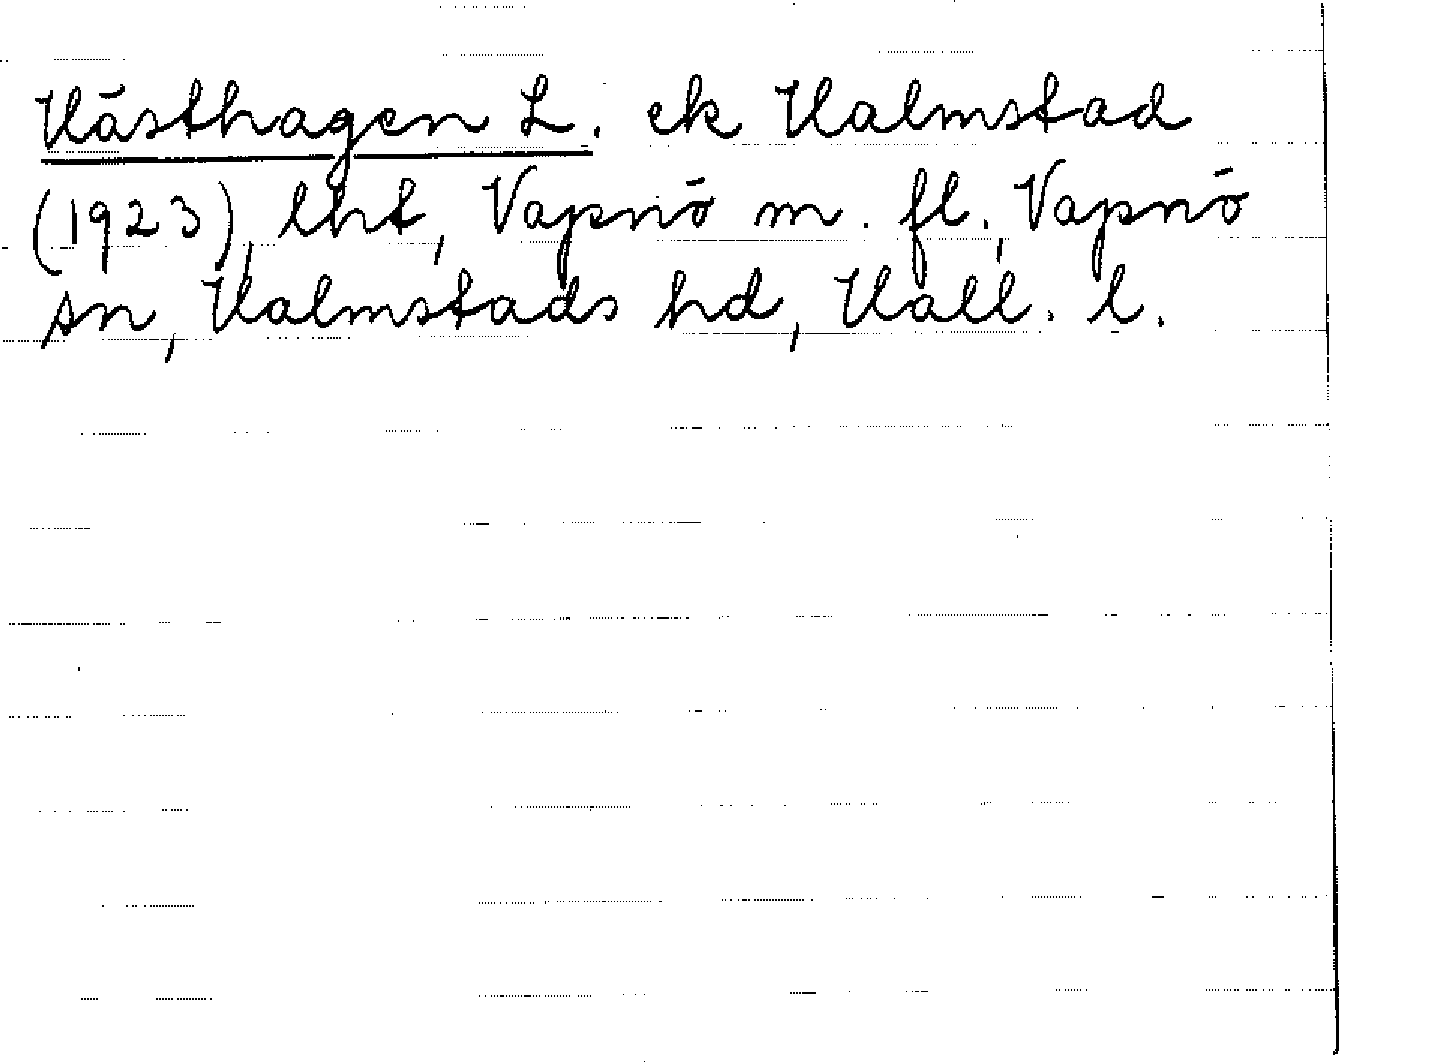 Hästhagen L. ek Halmstad
(1923), lht, Vapnö m. fl., Vapnö
sn, Halmstads hd, Hall. l.